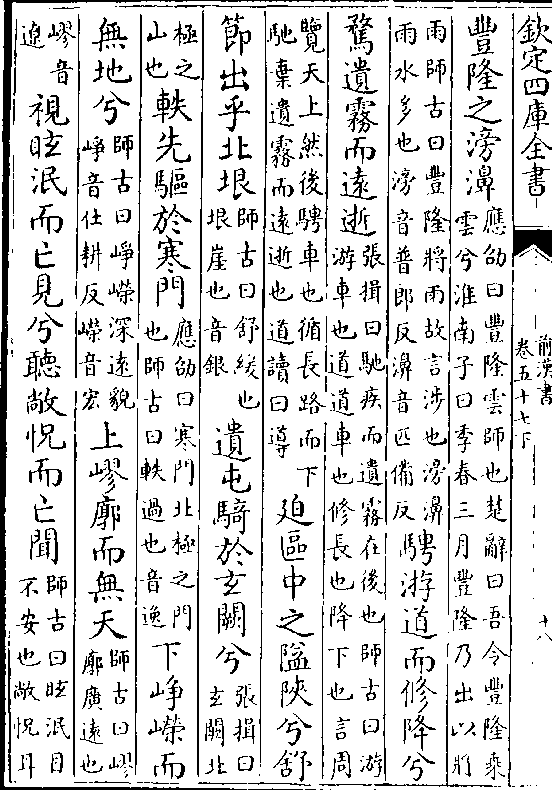 欽定四庫全書
前漢書
卷五十七下
十八
豐隆之滂濞應劭曰豐隆雲師也楚辭曰吾令豐隆乘
雲兮淮南子曰季春三月豐隆乃出以將
雨師古曰豐隆將雨故言涉也滂濞
雨水多也滂音普郎反濞音匹備反騁游道而修降兮
騖遺霧而遠逝張揖曰馳疾而遺霧在後也師古曰游
游車也道道車也修長也降下也言周
覽天上然後騁車也循長路而下
馳棄遺霧而遠逝也道讀曰導迫區中之隘陜兮舒
節出乎北垠師古曰舒緩也
垠崖也音銀遺屯騎於玄闕兮張揖曰
玄闕北
極之
山也軼先驅於寒門應劭曰寒門北極之門
也師古曰軼過也音逸下崢嶸而
無地兮師古曰崢嶸深遠貌
崢音仕耕反嶸音宏上嵺廓而無天師古曰嵺
廓廣遠也
嵺音
遼視眩泯而亡見兮聽敞怳而亡聞師古曰眩泯目
不安也敞怳耳